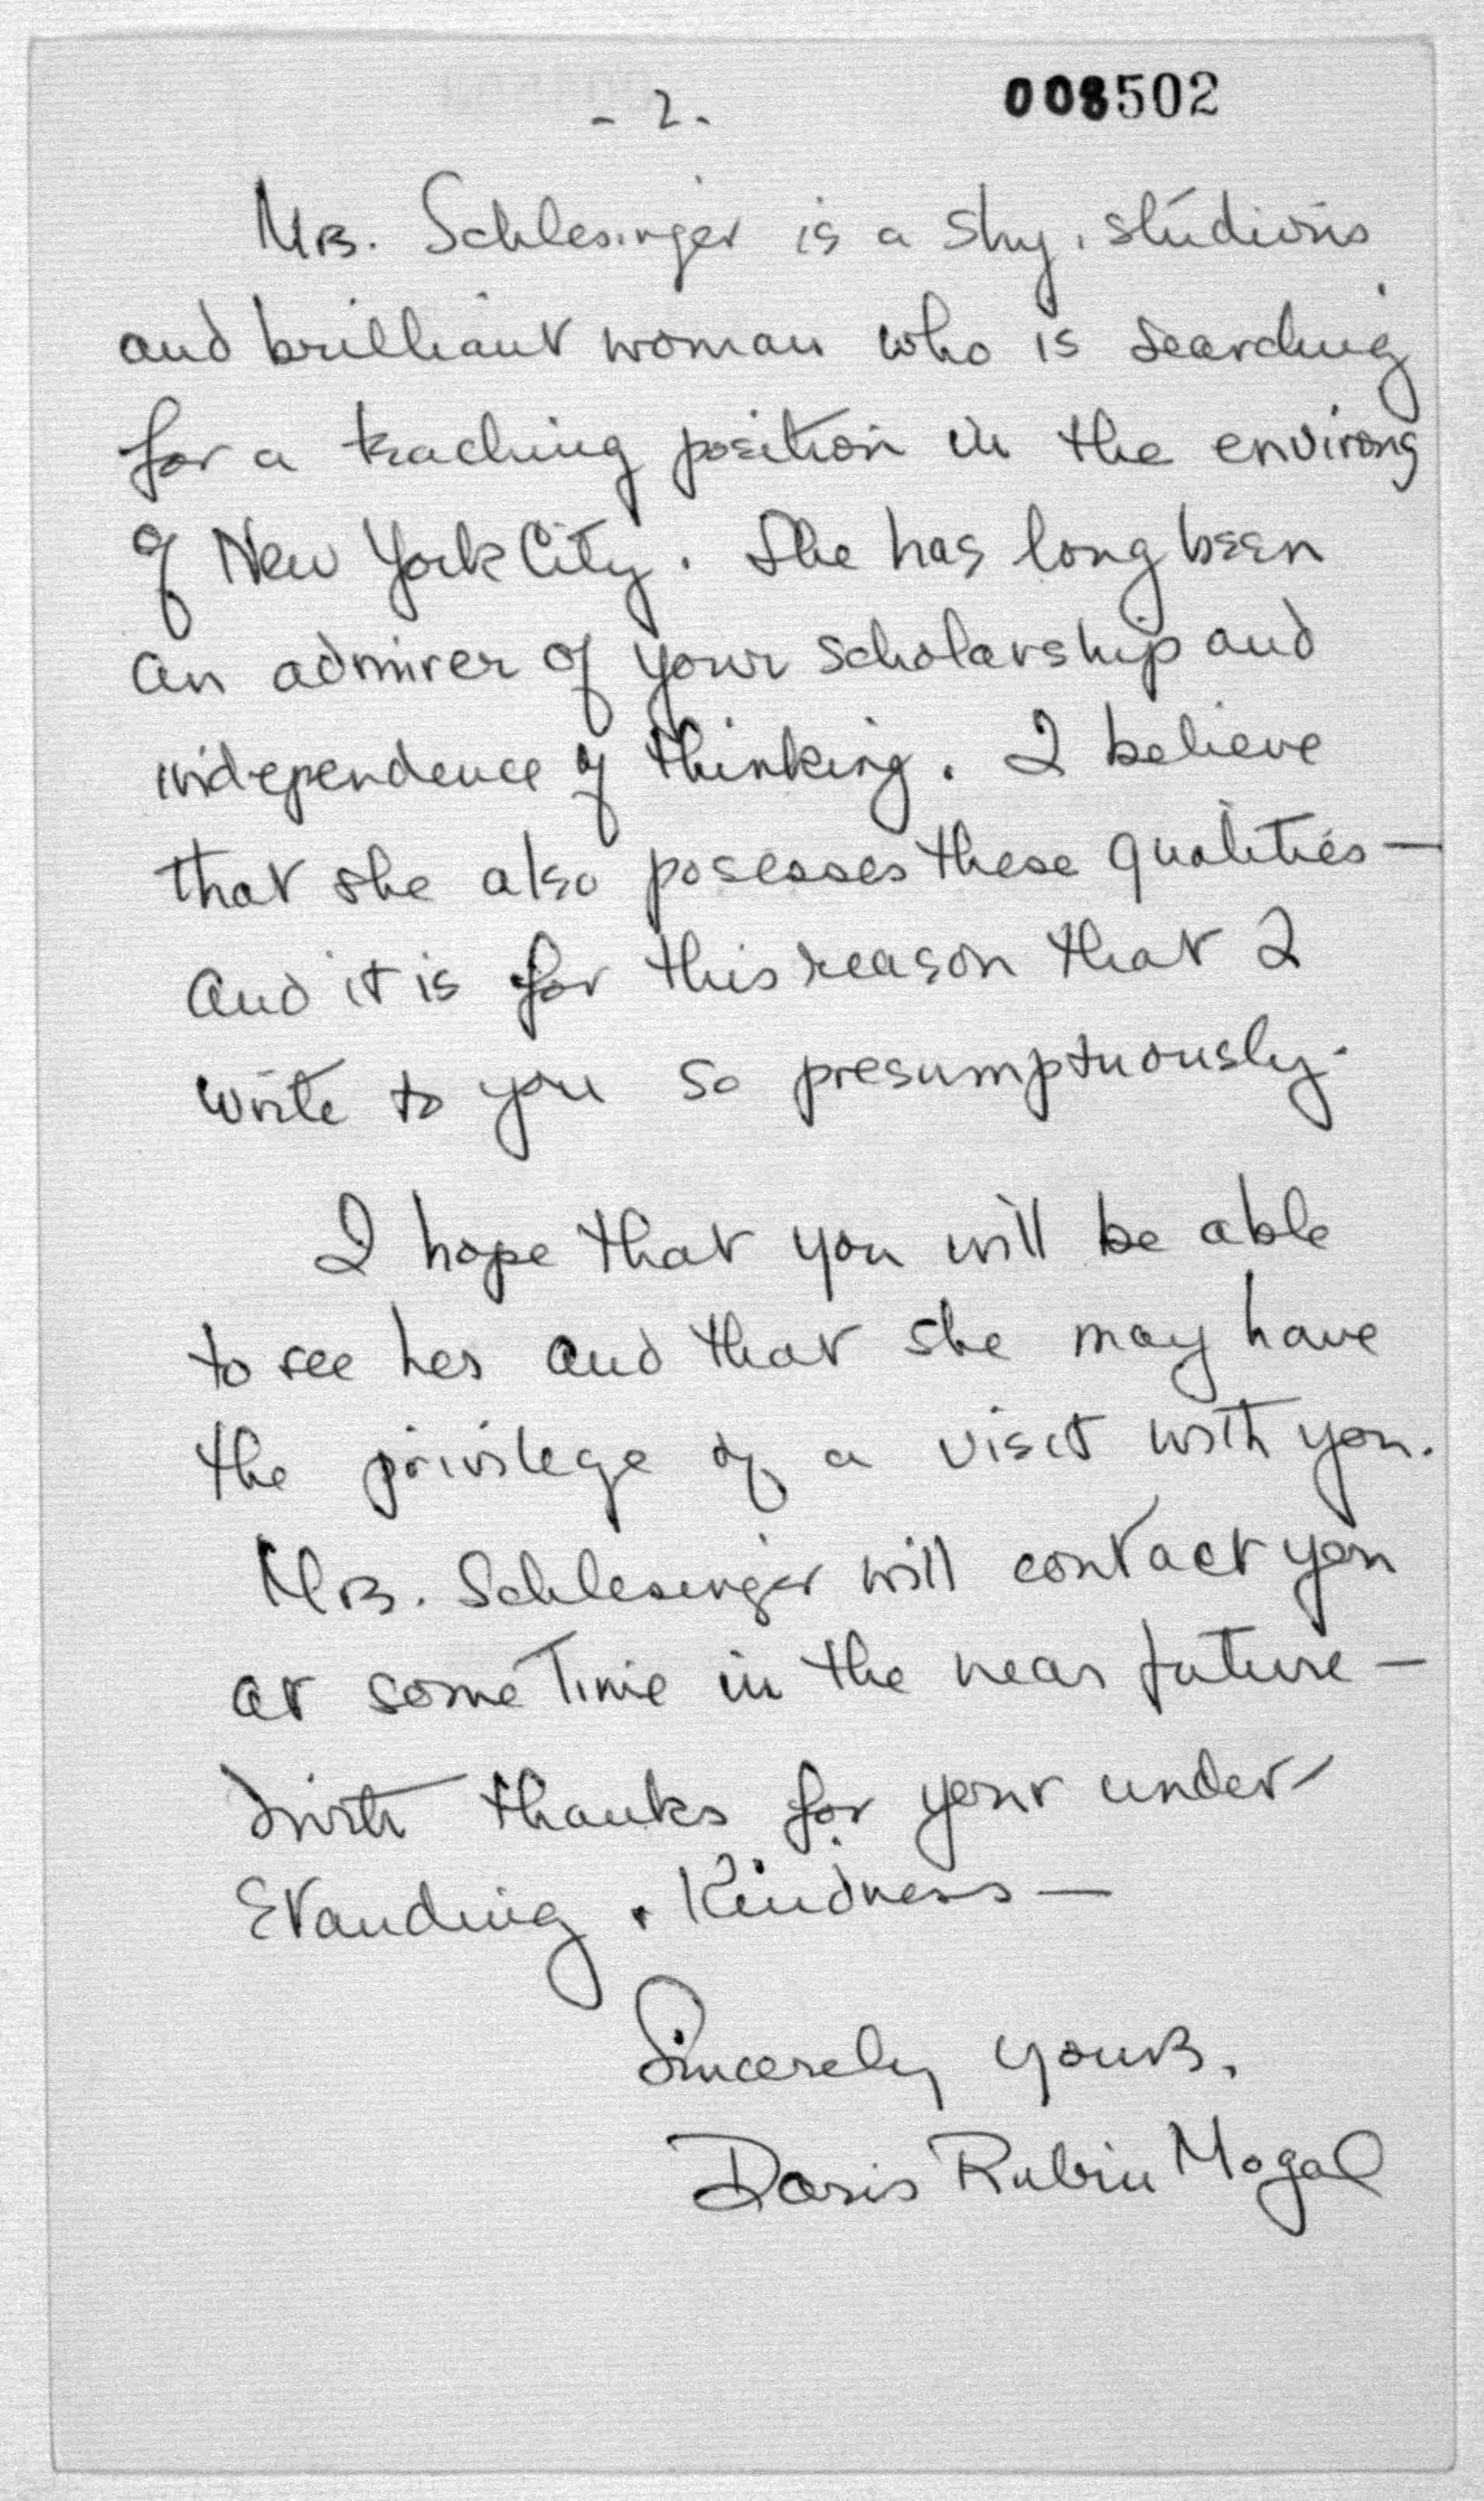 - 2 -
008502
Mrs. Schlesinger is a shy, studious
and brilliant woman who is searching
for a teaching position in the environs
of New York City. She has long been
an admirer of your scholarship and
independence of thinking. I believe
that she also posesses these qualities —
and it is for this reason that I
write to you so presumptuously.
I hope that you will be able
to see her and that she may have
the privilege of a visit with you.
Mrs. Schlesinger will contact you
at some time in the near future —
With thanks for your under-
standing + Kindness —
Sincerely yours,
Doris Rubin Mogal